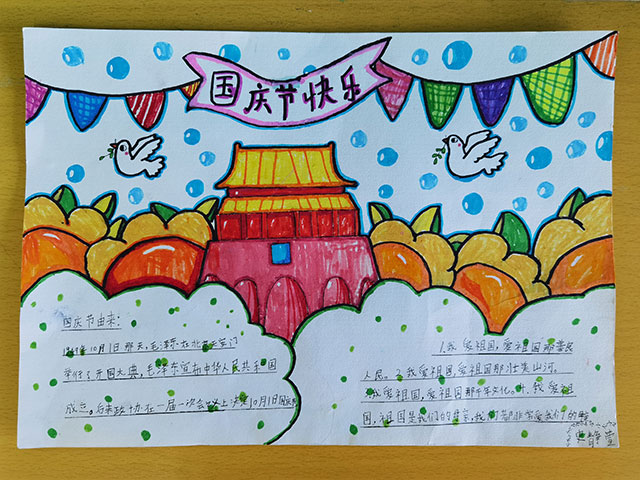 国庆节快乐
国庆节由来:
1949年10月1日那天,毛泽东在北京天安门
举行了开国大典,毛泽东宣布中华人民共和国
成立。后来政协在一届一次会议上决定10月1日国庆节
1.我爱祖国,爱祖国那
人民。2.我爱祖国,爱祖国那壮美山河。
我爱祖国,爱祖国那千年文化。4.我爱祖
国,祖国是我们的母亲,我们都非常爱我们的